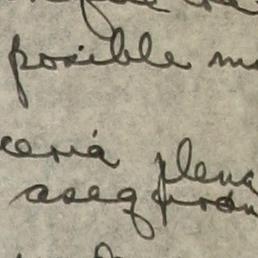 posible m
ceria plena
aseguran